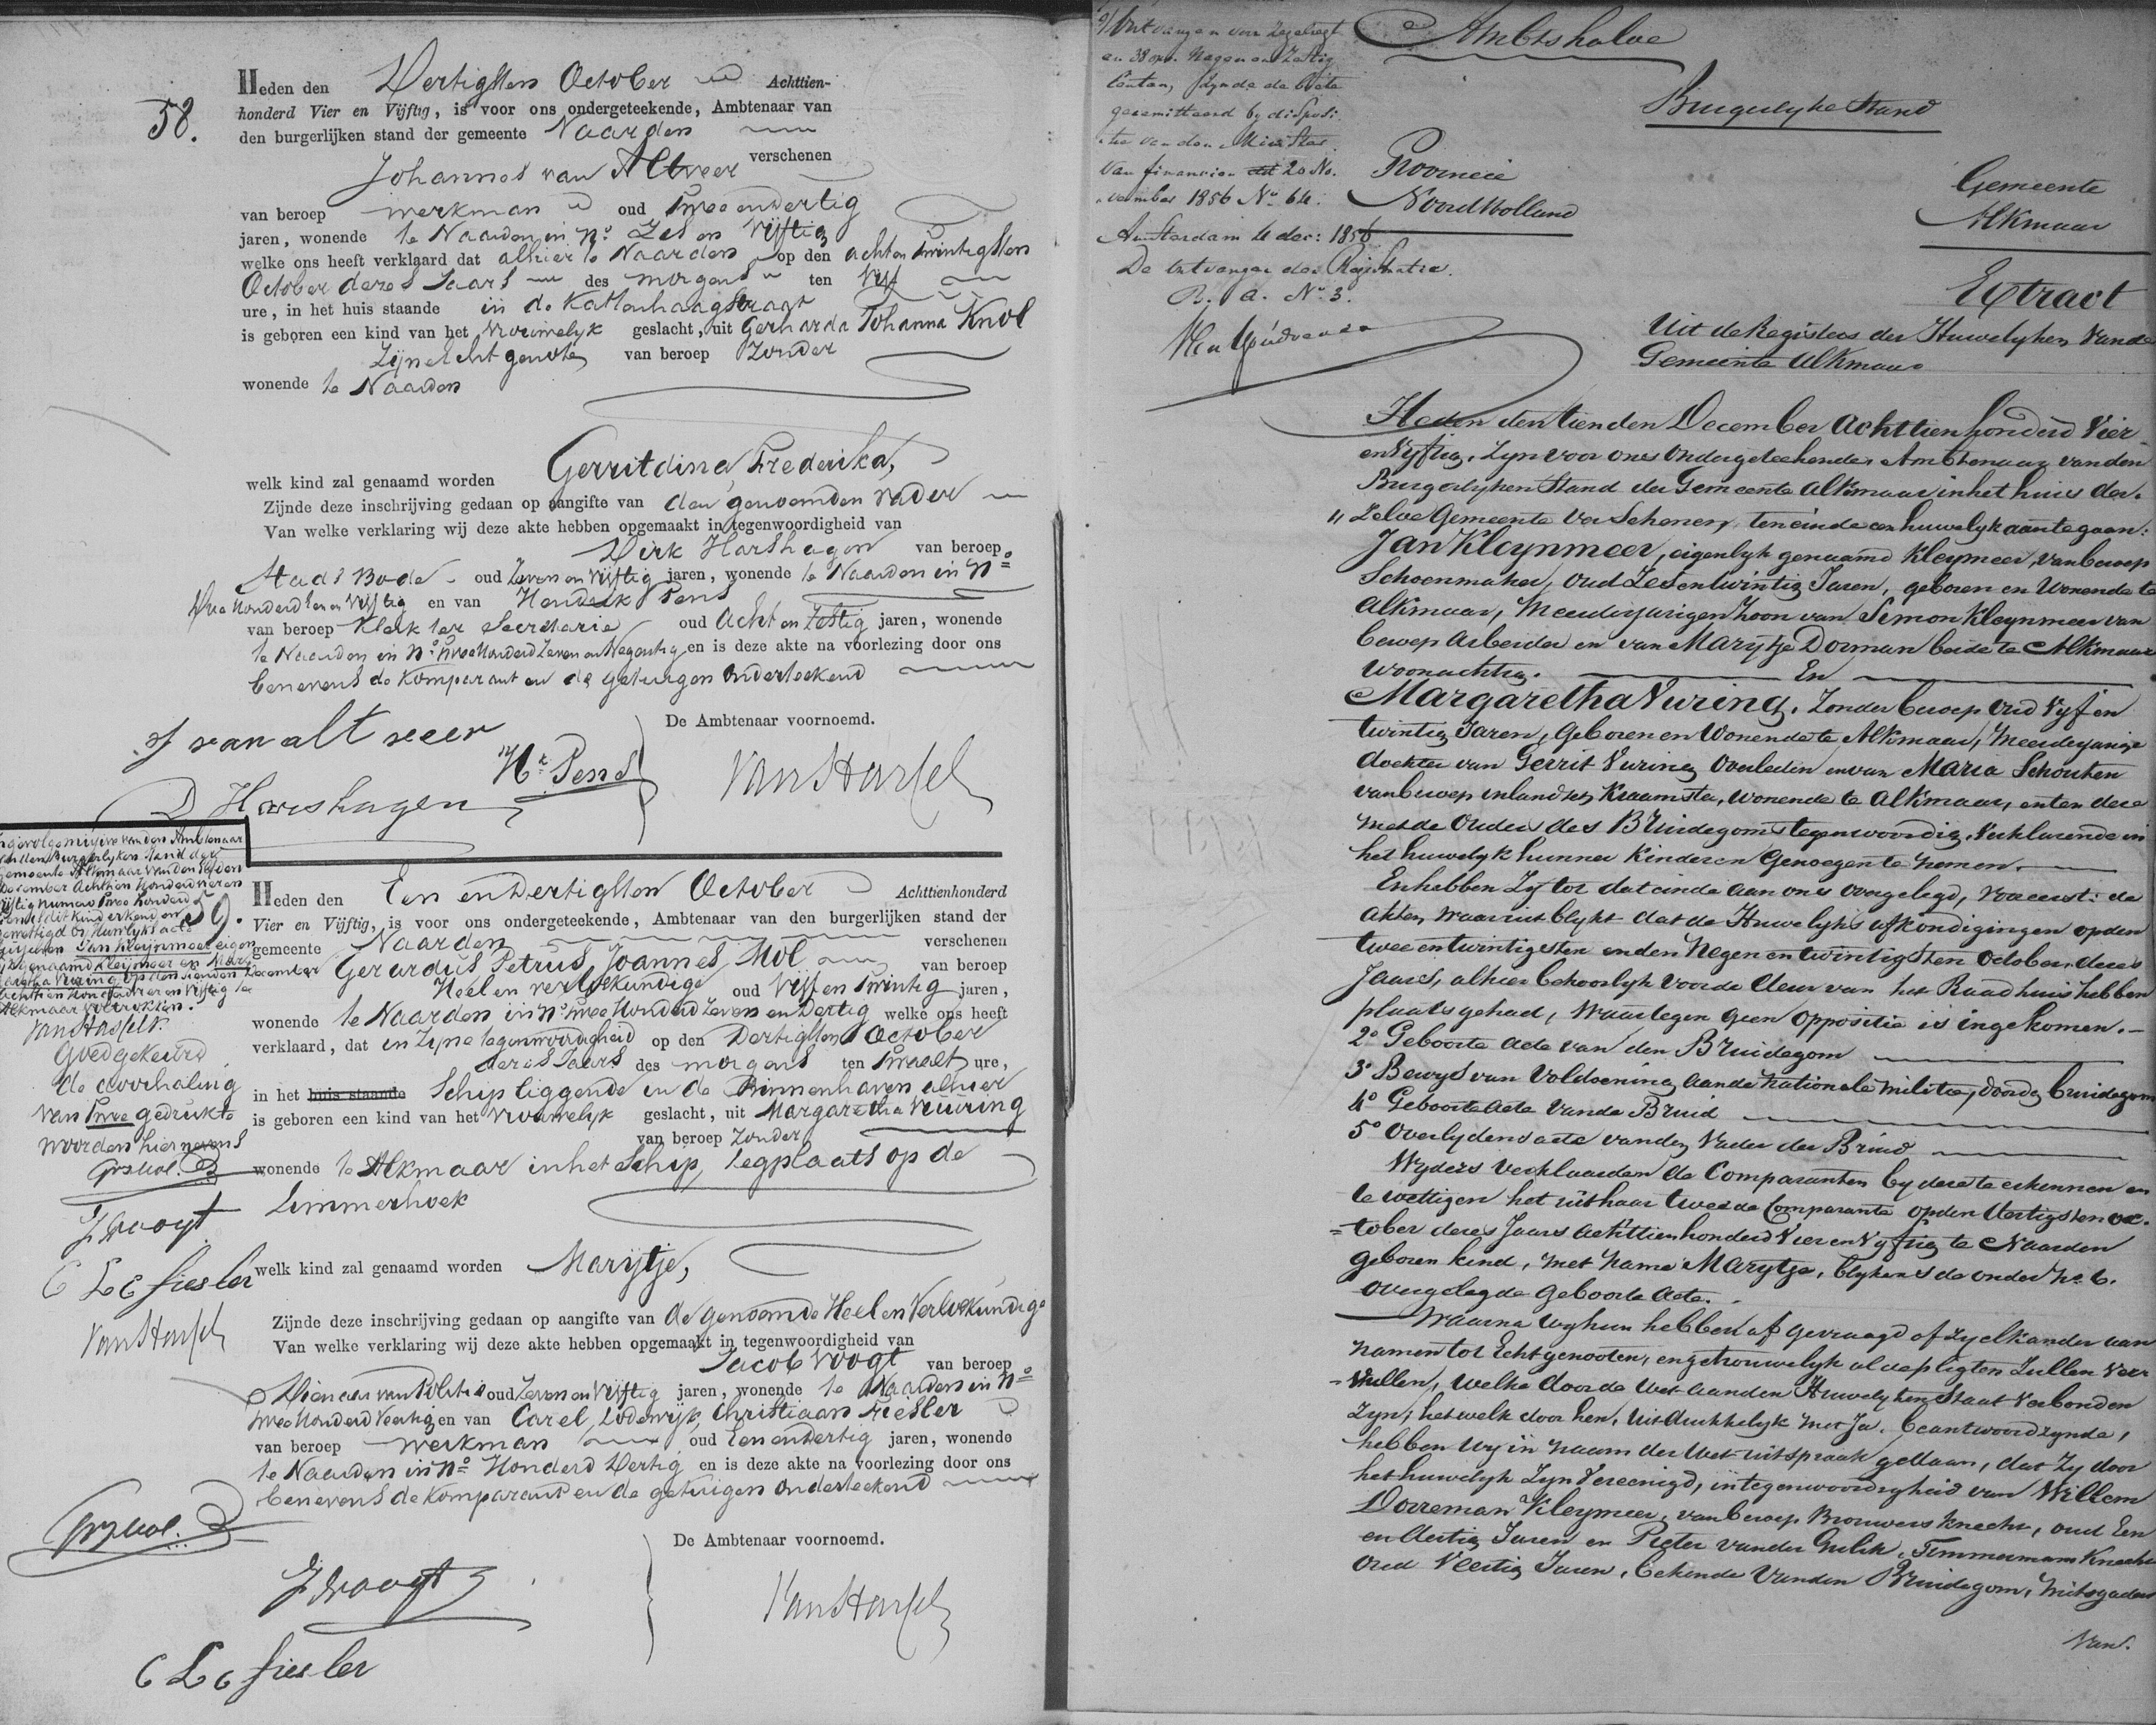 58.
Heden den Dertigsten October Achttien-
honderd Vier en Vijftig, is voor ons ondergeteekende, Ambtenaar van
den burgerlijken stand der gemeente Naarden
verschenen
Johannes van Altveer
van beroep werkman oud Twee en dertig
jaren, wonende te Naarden in No. Zes en Vijftig
welke ons heeft verklaard dat alhier te Naarden op den acht en twintigsten
October dezes Jaars des morgens ten Vijf
ure, in het huis staande in de Kattenhaagstraat
is geboren een kind van het Vrouwelijk geslacht, uit Gerharda Johanna Knol
Zijne Echtgenote van beroep Zonder
wonende te Naarden
welk kind zal genaamd worden Gerritdina Frederika,
Zijnde deze inschrijving gedaan op aangifte van den genoemden Vader
Van welke verklaring wij deze akte hebben opgemaakt in tegenwoordigheid van
Dirk Harshagen van beroep
Stads Bode oud Zeven en Vijftig jaren, wonende te Naarden in No
Drie Honderd Een en Vijftig en van Hendrik Pens
van beroep Klerk ter Secretarie oud Acht en Zestig jaren, wonende
te Naarden in No. Twee Honderd Zeven en Negentig en is deze akte na voorlezing door ons
benevens de Komparant en de getuigen Onderteekend
De Ambtenaar voornoemd.
J van alt veer
Hk Pens
D Harshagen
van Hasselt
59.
Ingevolge missive van den Ambtenaar
van den Burgerlijken Stand der
Gemeente Alkmaar van den elfden
December Achttien Honderd vier en
vijftig numero Twee honderd
is dit kind erkend en
gewettigd bij Huwelijks acte
tusschen Jan Kleijnmeer eigen-
lijk genaamd Kleijmeer en Mar-
garetha Vuring op den tienden December
Achttien Honderd vier en vijftig te
Alkmaar voltrokken.
van Hasselt.
Goedgekeurd
de doorhaling
van Twee gedrukte
woorden hiernevens
GPJ Mol
J Woogt
C L C Fiesler
van Hasselt
Heden den Een en Dertigsten October Achttienhonderd
Vier en Vijftig, is voor ons ondergeteekende, Ambtenaar van den burgerlijken stand der
gemeente Naarden verschenen
Gerardus Petrus Joannes Mol van beroep
Heel en verloskundige oud Vijf en Twintig jaren,
wonende te Naarden in No. Twee Honderd Zeven en Dertig welke ons heeft
verklaard, dat in Zijne tegenwoordigheid op den Dertigsten October
dezes Jaars des morgens ten Twaalf ure,
in het huis staande Schip liggende in de Binnenhaven alhier
is geboren een kind van het Vrouwelijk geslacht, uit Margaretha Vuuring
van beroep Zonder
wonende te Alkmaar in het Schip, legplaats op de
Limmerhoek
welk kind zal genaamd worden Marijtje,
Zijnde deze inschrijving gedaan op aangifte van de genoemde Heel en Verloskundige
Van welke verklaring wij deze akte hebben opgemaakt in tegenwoordigheid van
Jacob Woogt van beroep
Dienaar van Politie oud Zeven en Vijftig jaren, wonende te Naarden in No
Twee Honderd Veertig en van Carel Lodewijk Christiaan Fiesler
van beroep Werkman oud Een en Dertig jaren, wonende
te Naarden in No Honderd Dertig en is deze akte na voorlezing door ons
benevens de Komparant en de getuigen Onderteekend
De Ambtenaar voornoemd.
GPJ Mol.
J Woogt
van Hasselt
C L C Fiesler
Ontvangen voor Zegelregt
en 38 opc. Negen en Zestig
Centen, zynde de boete
geremitteerd by disposi-
tie van den Minister
van financien dd 20 No-
vember 1856 No. 64.
Amsterdam 4 dec: 1856
De Ontvanger der Registratie.
R. A. No. 3.
Ambtshalve
Burgerlyke Stand
Provincie
Noord Holland
Gemeente
Alkmaar
Extract
Uit de Registers der Huwelyken Van de
Gemeente Alkmaar
Heden den tienden December Achttienhonderd Vier
en Vyftig, Zyn voor ons Ondergeteekende, Ambtenaar van den
Burgerlyken Stand der Gemeente Alkmaar in het huis der-
" Zelve Gemeente Verschenen, ten einde een huwelyk aan te gaan:
Jan Kleynmeer, eigenlyk genaamd Kleymeer, van beroep
Schoenmaker, Oud Zes en twintig Jaren, geboren en Wonende te
Alkmaar, Meerderjarigen Zoon van Simon Kleynmeer van
beroep Arbeider en van Marytje Dorman beide te Alkmaar
Woonachtig. En
Margaretha Vuring. Zonder beroep Oud Vyf en
twintig Jaren, Geboren en Wonende te Alkmaar, Meerderjarige
dochter van Gerrit Vuring Overleden en van Maria Schouten
van beroep inlandsch Kraamster, Wonende te Alkmaar, en ten deze
met de Ouders des Bruidegoms tegenwoordig, Verklarende in
het huwelyk hunner Kinderen Genoegen te nemen.
En hebben Zy tot dat einde aan ons overgelegd, Vooreerst: de
Akten, waaruit blykt dat de Huwelyks afkondigingen op den
twee en twintigsten en den Negen en twintigsten October, dezes
Jaars, alhier behoorlyk voor de deur van het Raadhuis hebben
plaats gehad, Waartegen geen oppositie is ingekomen.
2o Geboorte Acte van den Bruidegom
3o Bewys van Voldoening aan de Nationale Militie, door den bruidegom
4o Geboorte Acte van de Bruid
5o Overlydens acte van den Vader der Bruid
Wyders Verklaarden de Comparanten by deze te erkennen en
te wettigen het uit haar tweede Comparante op den dertigsten oc-
=tober dezes Jaars Achttienhonderd Vier en Vyftig te Naarden
geboren kind, met name Marytje, blykens de onder No. 6.
overgelegde Geboorte Acte.
Waarna wy hun hebben af gevraagd of Zy elkander aan
namen tot Echtgenooten, en getrouwelyk al de pligten Zullen Ver-
vullen, welke door de Wet aan den Huwelyken Staat Verbonden
Zyn; hetwelk door hen, Uitdrukkelyk met Ja. beantwoord zynde,
hebben wy in naam der Wet uitspraak gedaan, dat Zy door
het huwelyk Zyn Vereenigd, in tegenwoordigheid van Willem
Dorreman Kleymeer, van beroep Brouwers Knecht, oud Een
en dertig Jaren en Pieter van der Gulik, Timmermans Knecht
Oud Veertig Jaren, bekende van den Bruidegom, Mitsgaders
Van.